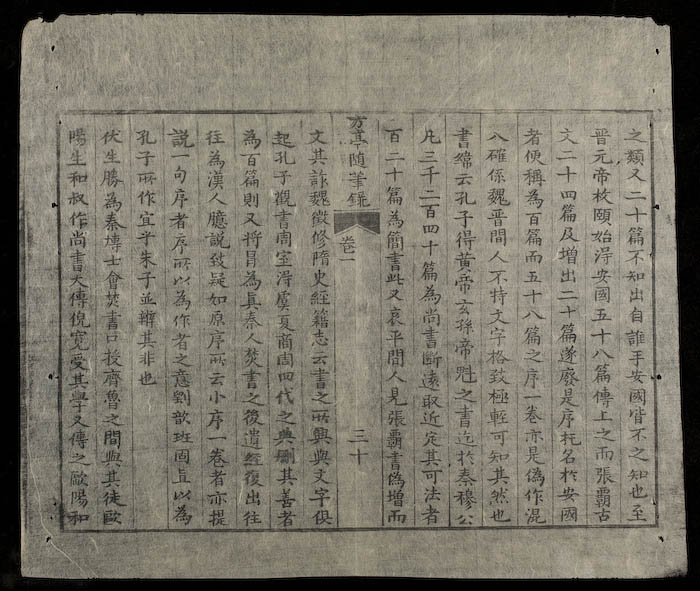 之類又二十篇不知出自誰手安國皆不之知也至
晉元帝枚頤始淂安國五十八篇傳上之而張霸古
文二十四篇及增出二十篇遂廢是序托名於安國
者便稱為百篇而五十八篇之序一卷亦是偽作混
八確係魏晉間人不特文字格致極輕可知其然也
書緯云孔子得黃帝玄孫帝魁之書迄於秦穆公
凡三千二百四十篇為尚書斷遠取近定其可法者
百二十篇為簡書此又哀平間人見張霸書偽增而
方亭隨筆錄 卷一 三十
文其詐魏徵修隋史經籍志云書之所興與文字俱
起孔子觀書周室淂虞夏商周四代之典刪其善者
為百篇則又將冐為真秦人焚書之後遺經復出往
往為漢人臆說致疑如原序所云小序一卷者亦提
說一句序者序所以為作者之意劉歆班固直以為
孔子所作宜乎朱子並辨其非也
伏生勝為秦博士會焚書口授齊魯之間與其徒歐
陽生和叔作尚書大傳倪寬受其學又傳之歐陽和